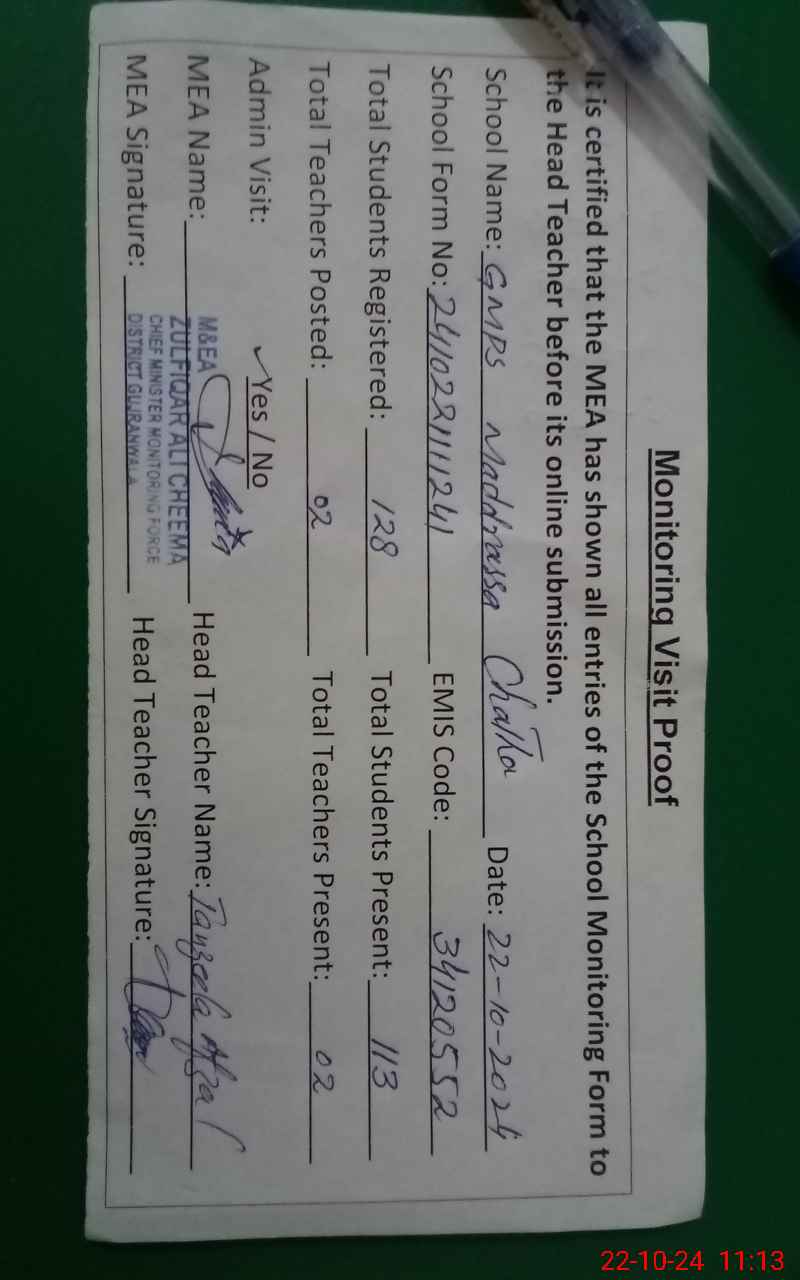 Monitoring Visit Proof
It is certified that the MEA has shown all entries of the School Monitoring Form to
the Head Teacher before its online submission.
School Name: GMPS Maddrassa Chatha Date: 22-10-2024
School Form No: 2411022111241 EMIS Code: 34120552
Total Students Registered: 128 Total Students Present: 113
Total Teachers Posted: 02 Total Teachers Present: 02
Admin Visit: ✓Yes / No
MEA Name: Head Teacher Name: Tanzeela Afzal
MEA Signature: Head Teacher Signature:
M&EA
ZULFIQAR ALI CHEEMA
CHIEF MINISTER MONITORING FORCE
DISTRICT GUJRANWALA
22-10-24 11:13